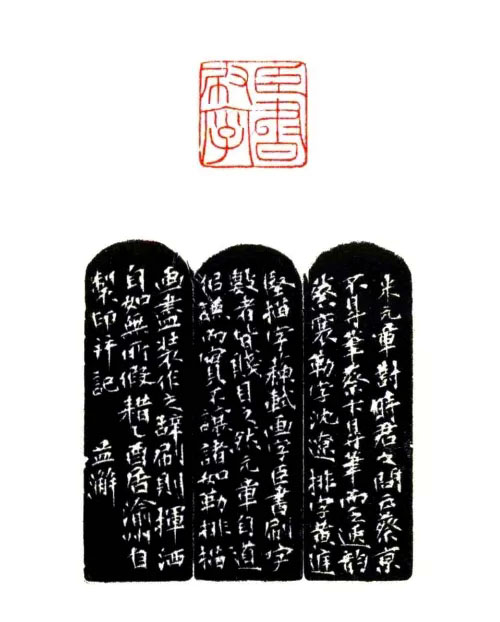 臣書
刷字
米元章對時君之問曰蔡京
不得筆蔡卞得筆而乏逸韵
蔡襄勒字沈遼排字黃庭
堅描字蘇軾畫字臣書刷字
數者皆賤目之然元章自道
似謙而實不謙諸如勒排描
畫盡裝作之辭刷則揮洒
自如無所假耤乙酉居渝州自
製印并記 益澥